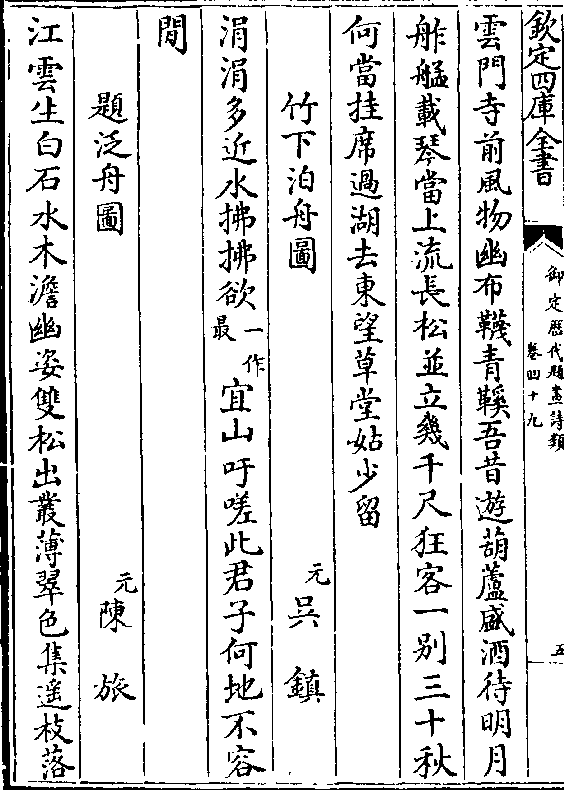 欽定四庫全書
御定歷代題畫詩類
卷四十九
五
雲門寺前風物幽布韈青鞵吾昔遊葫蘆盛酒待明月
舴艋載琴當上流長松並立幾千尺狂客一别三十秋
何當挂席過湖去東望草堂姑少留
竹下泊舟圖 元 吳鎮
涓涓多近水拂拂欲一作最宜山吁嗟此君子何地不容
閒
題泛舟圖 元 陳旅
江雲生白石水木澹幽姿雙松出叢薄翠色集遥枝落